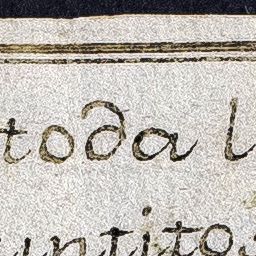 toda l
untitos